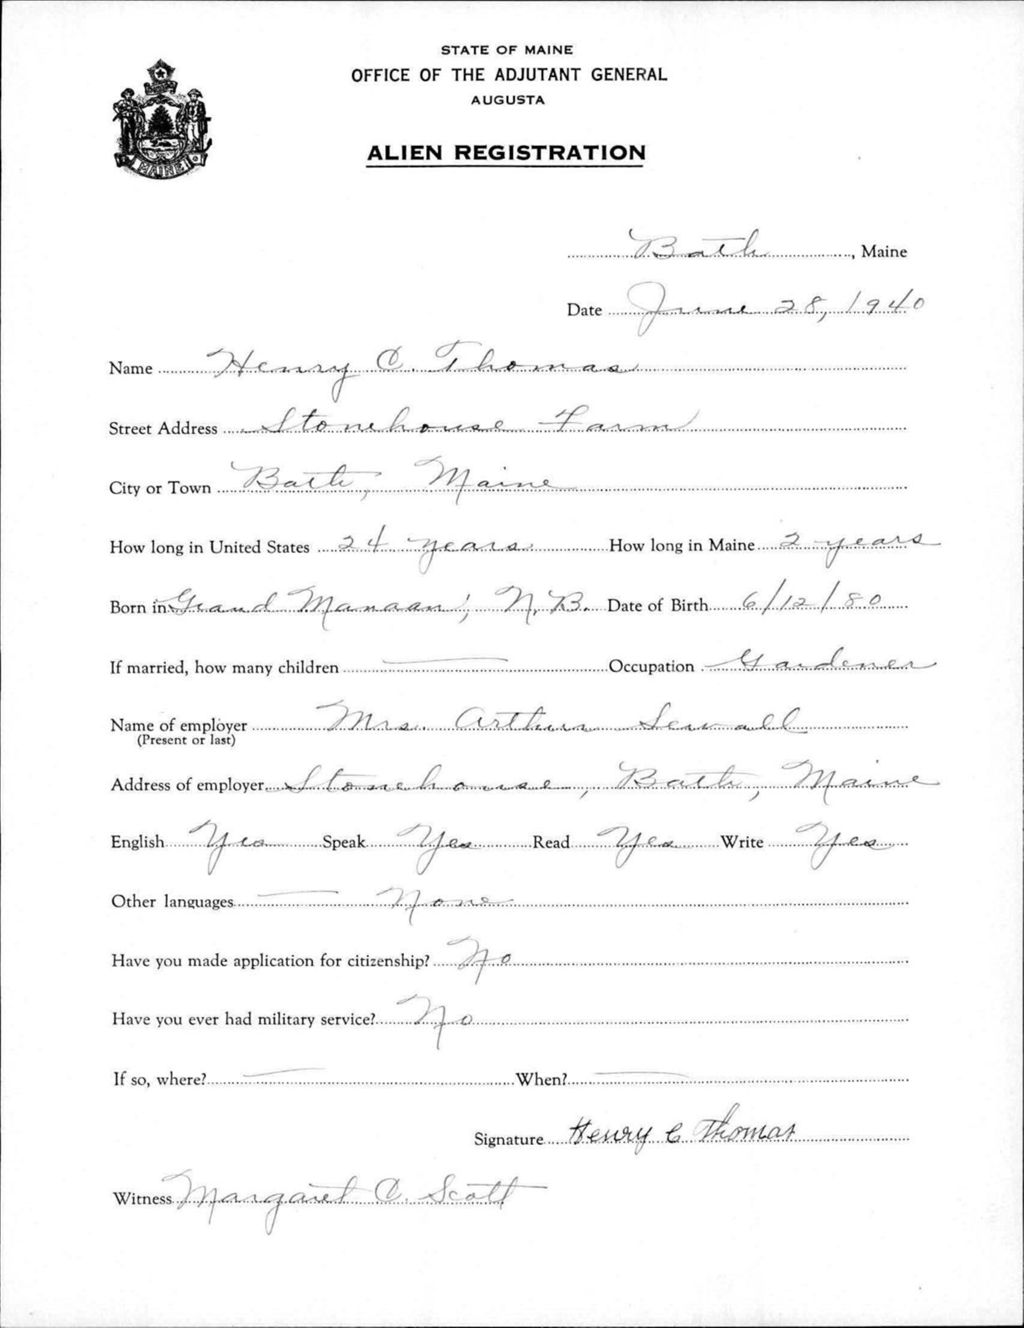 STATE OF MAINE
OFFICE OF THE ADJUTANT GENERAL
AUGUSTA
ALIEN REGISTRATION
MAINE
Bath, Maine
Date June 28, 1940
Name Henry C. Thomas
Street Address Stonehouse Farm
City or Town Bath, Maine
How long in United States 24 years How long in Maine 2 years
Born in Grand Manaan, N.B. Date of Birth 6/12/80
If married, how many children — Occupation Gardener
Name of employer Mrs. Arthur Sewall
(Present or last)
Address of employer Stonehouse, Bath, Maine
English Yes Speak Yes Read Yes Write Yes
Other languages — None
Have you made application for citizenship? No
Have you ever had military service? No
If so, where? — When? —
Signature Henry C Thomas
Witness Margaret C. Scott